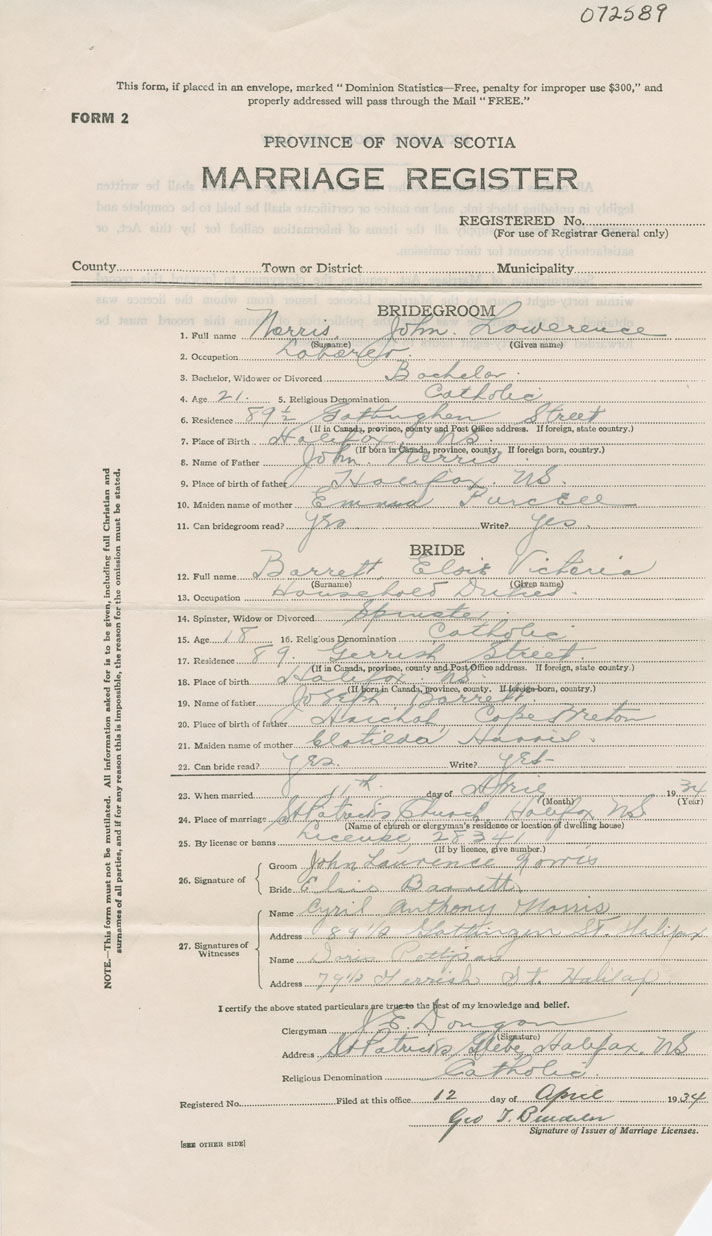 072589
This form, if placed in an envelope, marked "Dominion Statistics—Free, penalty for improper use $300," and
properly addressed will pass through the Mail "FREE."
FORM 2
PROVINCE OF NOVA SCOTIA
MARRIAGE REGISTER
REGISTERED No.
(For use of Registrar General only)
County Town or District Municipality
BRIDEGROOM
1. Full name Norris, John. Lowerence
(Surname) (Given name)
2. Occupation Laborer.
3. Bachelor, Widower or Divorced Bachelor.
4. Age 21. 5. Religious Denomination Catholic
6. Residence 89½ Gottinghen Street
(If in Canada, province, county and Post Office address. If foreign, state country.)
7. Place of Birth Halifax NS.
(If born in Canada, province, county. If foreign born, country.)
8. Name of Father John Norris
9. Place of birth of father Halifax. NS.
10. Maiden name of mother Emma Purcell
11. Can bridegroom read? yes Write? yes.
BRIDE
12. Full name Barrett, Elsie Victoria
(Surname) (Given name)
13. Occupation Household Duties.
14. Spinster, Widow or Divorced Spinster.
15. Age 18 16. Religious Denomination Catholic
17. Residence 89. Gerrish Street.
(If in Canada, province, county and Post Office address. If foreign, state country.)
18. Place of birth Halifax. NS.
(If born in Canada, province, county. If foreign-born, country.)
19. Name of father Joseph Barrett
20. Place of birth of father Cape Breton
21. Maiden name of mother Clotilda
22. Can bride read? yes. Write? yes-
23. When married 11th day of April 1934
(Month) (Year)
24. Place of marriage St Patricks Church Halifax NS
(Name of church or clergyman's residence or location of dwelling house)
25. By license or banns License 28341
(If by licence, give number.)
26. Signature of Groom John Laurence Norris
Bride Elsie Barrett.
27. Signatures of Witnesses
Name Cyril Anthony Norris
Address 89½ Gottingen St. Halifax
Name Doris
Address 79½ Gerrish St. Halifax
I certify the above stated particulars are true to the best of my knowledge and belief.
Clergyman J. E. Dongan
(Signature)
Address St Patricks Glebe, Halifax, NS
Religious Denomination Catholic
Registered No. Filed at this office 12 day of April 1934
Geo T.
Signature of Issuer of Marriage Licenses.
[SEE OTHER SIDE]
NOTE.—This form must not be mutilated. All information asked for is to be given, including full Christian and
surnames of all parties, and if for any reason this is impossible, the reason for the omission must be stated.